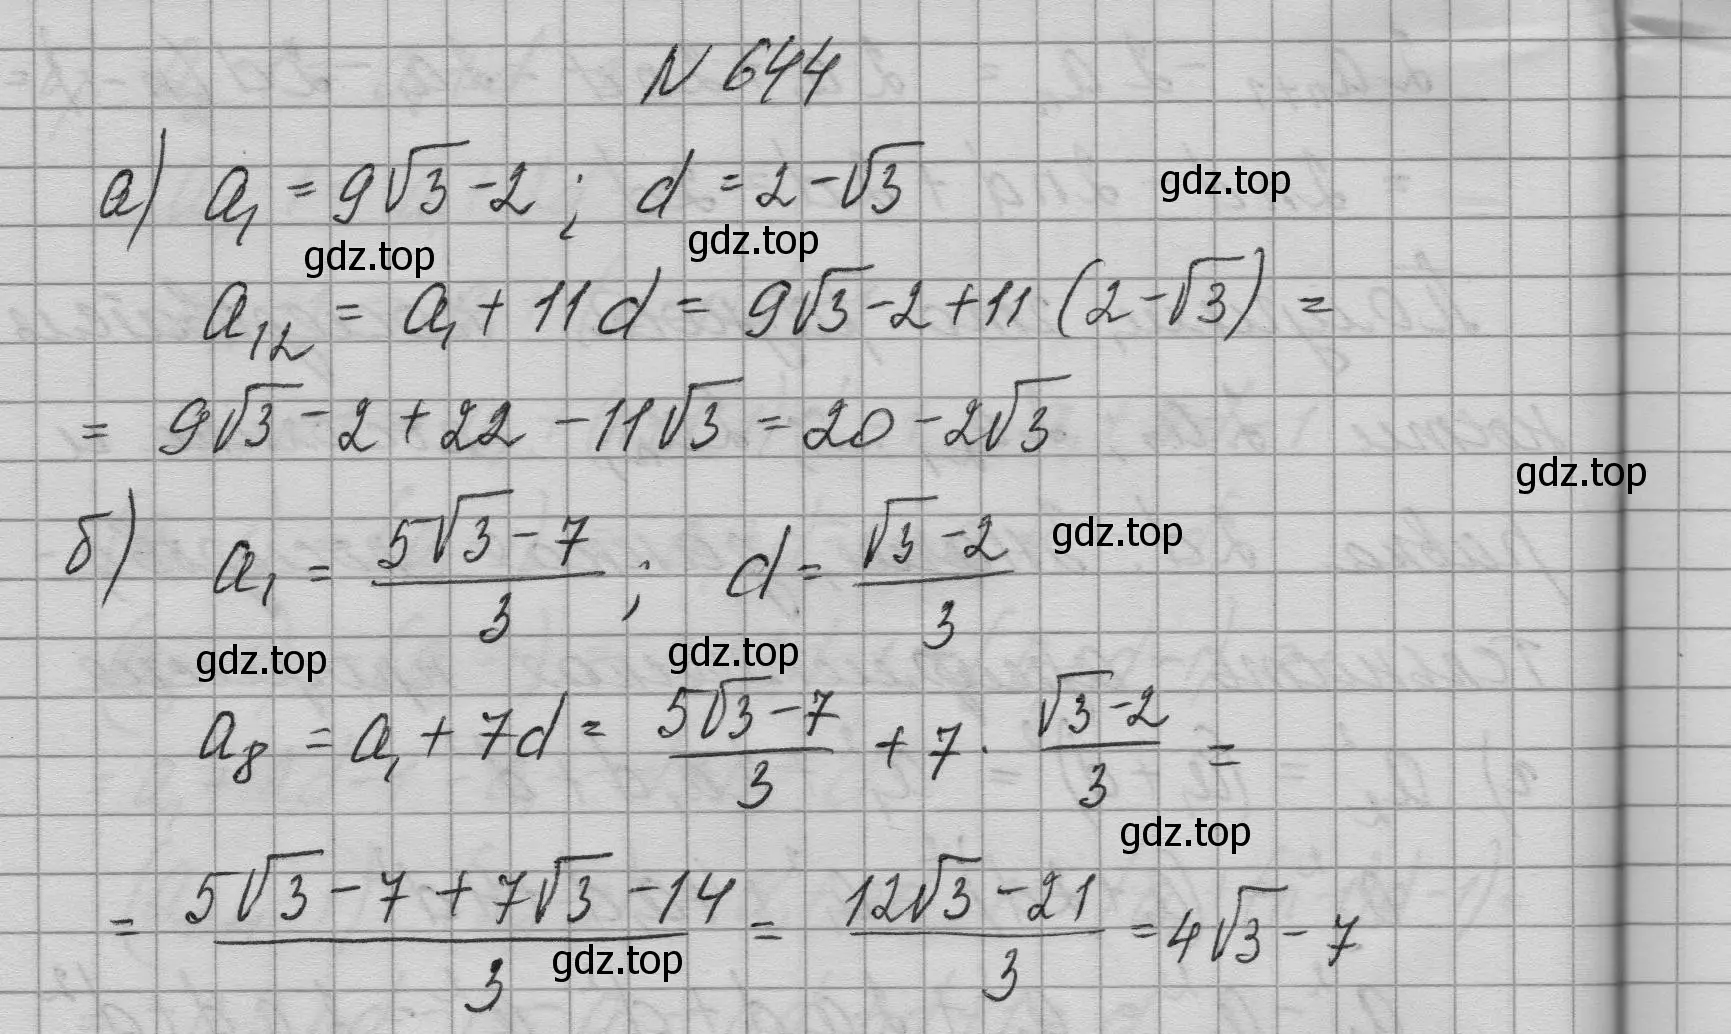 N 644
а) a₁ = 9√3 - 2 ; d = 2 - √3
gdz.top
gdz.top gdz.top
a₁₂ = a₁ + 11d = 9√3 - 2 + 11·(2 - √3) =
= 9√3 - 2 + 22 - 11√3 = 20 - 2√3
gdz.top
б) a₁ = (5√3 - 7)/3 ; d = (√3 - 2)/3
gdz.top
gdz.top gdz.top
a₈ = a₁ + 7d = (5√3 - 7)/3 + 7 · (√3 - 2)/3 =
gdz.top
= (5√3 - 7 + 7√3 - 14)/3 = (12√3 - 21)/3 = 4√3 - 7
gdz.top